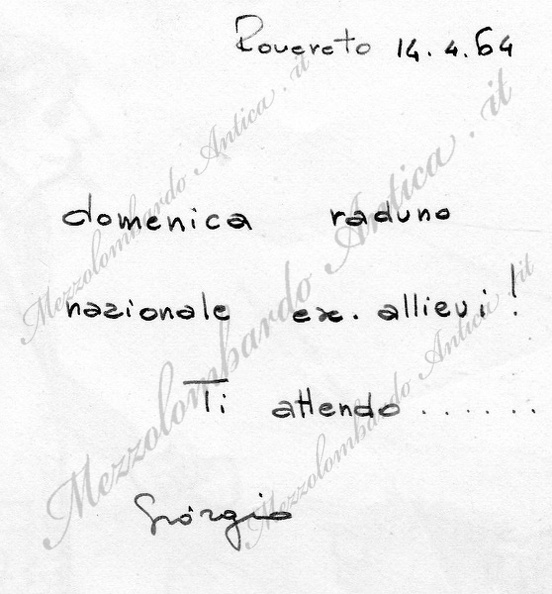 Rovereto 14.4.64
domenica raduno
nazionale ex. allievi!
Ti attendo .......
Giorgio
Mezzolombardo Antica.it
Mezzolombardo Antica.it
Mezzolombardo Antica.it